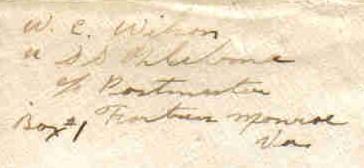 W. C. Wilson
U S S
c/o Postmaster
Box #1 Fortress Monroe
Va